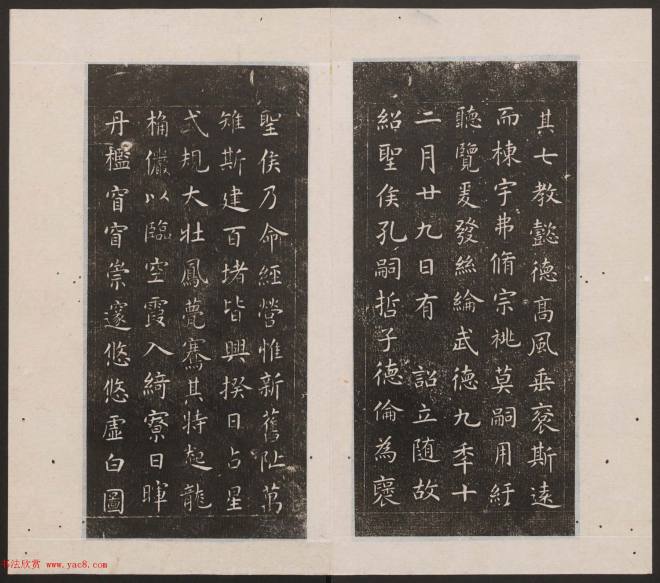 其七教懿德高風垂裦斯遠
而棟宇弗脩宗祧莫嗣用紆
聽覽爰發絲綸武德九秊十
二月廿九日有 詔立随故
紹聖侯孔嗣哲子德倫為襃
聖侯乃命經營惟新舊阯萬
雉斯建百堵皆興揆日占星
式規大壯鳳甍騫其特起龍
桷儼以臨空霞入綺寮日暉
丹檻窅窅崇邃悠悠虛白圖
书法欣赏 www.yac8.com